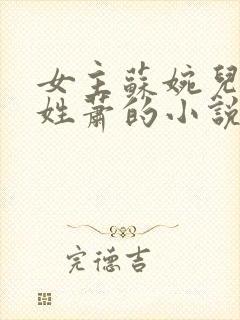 女主蘇婉兒
姓蕭的小說
完德吉